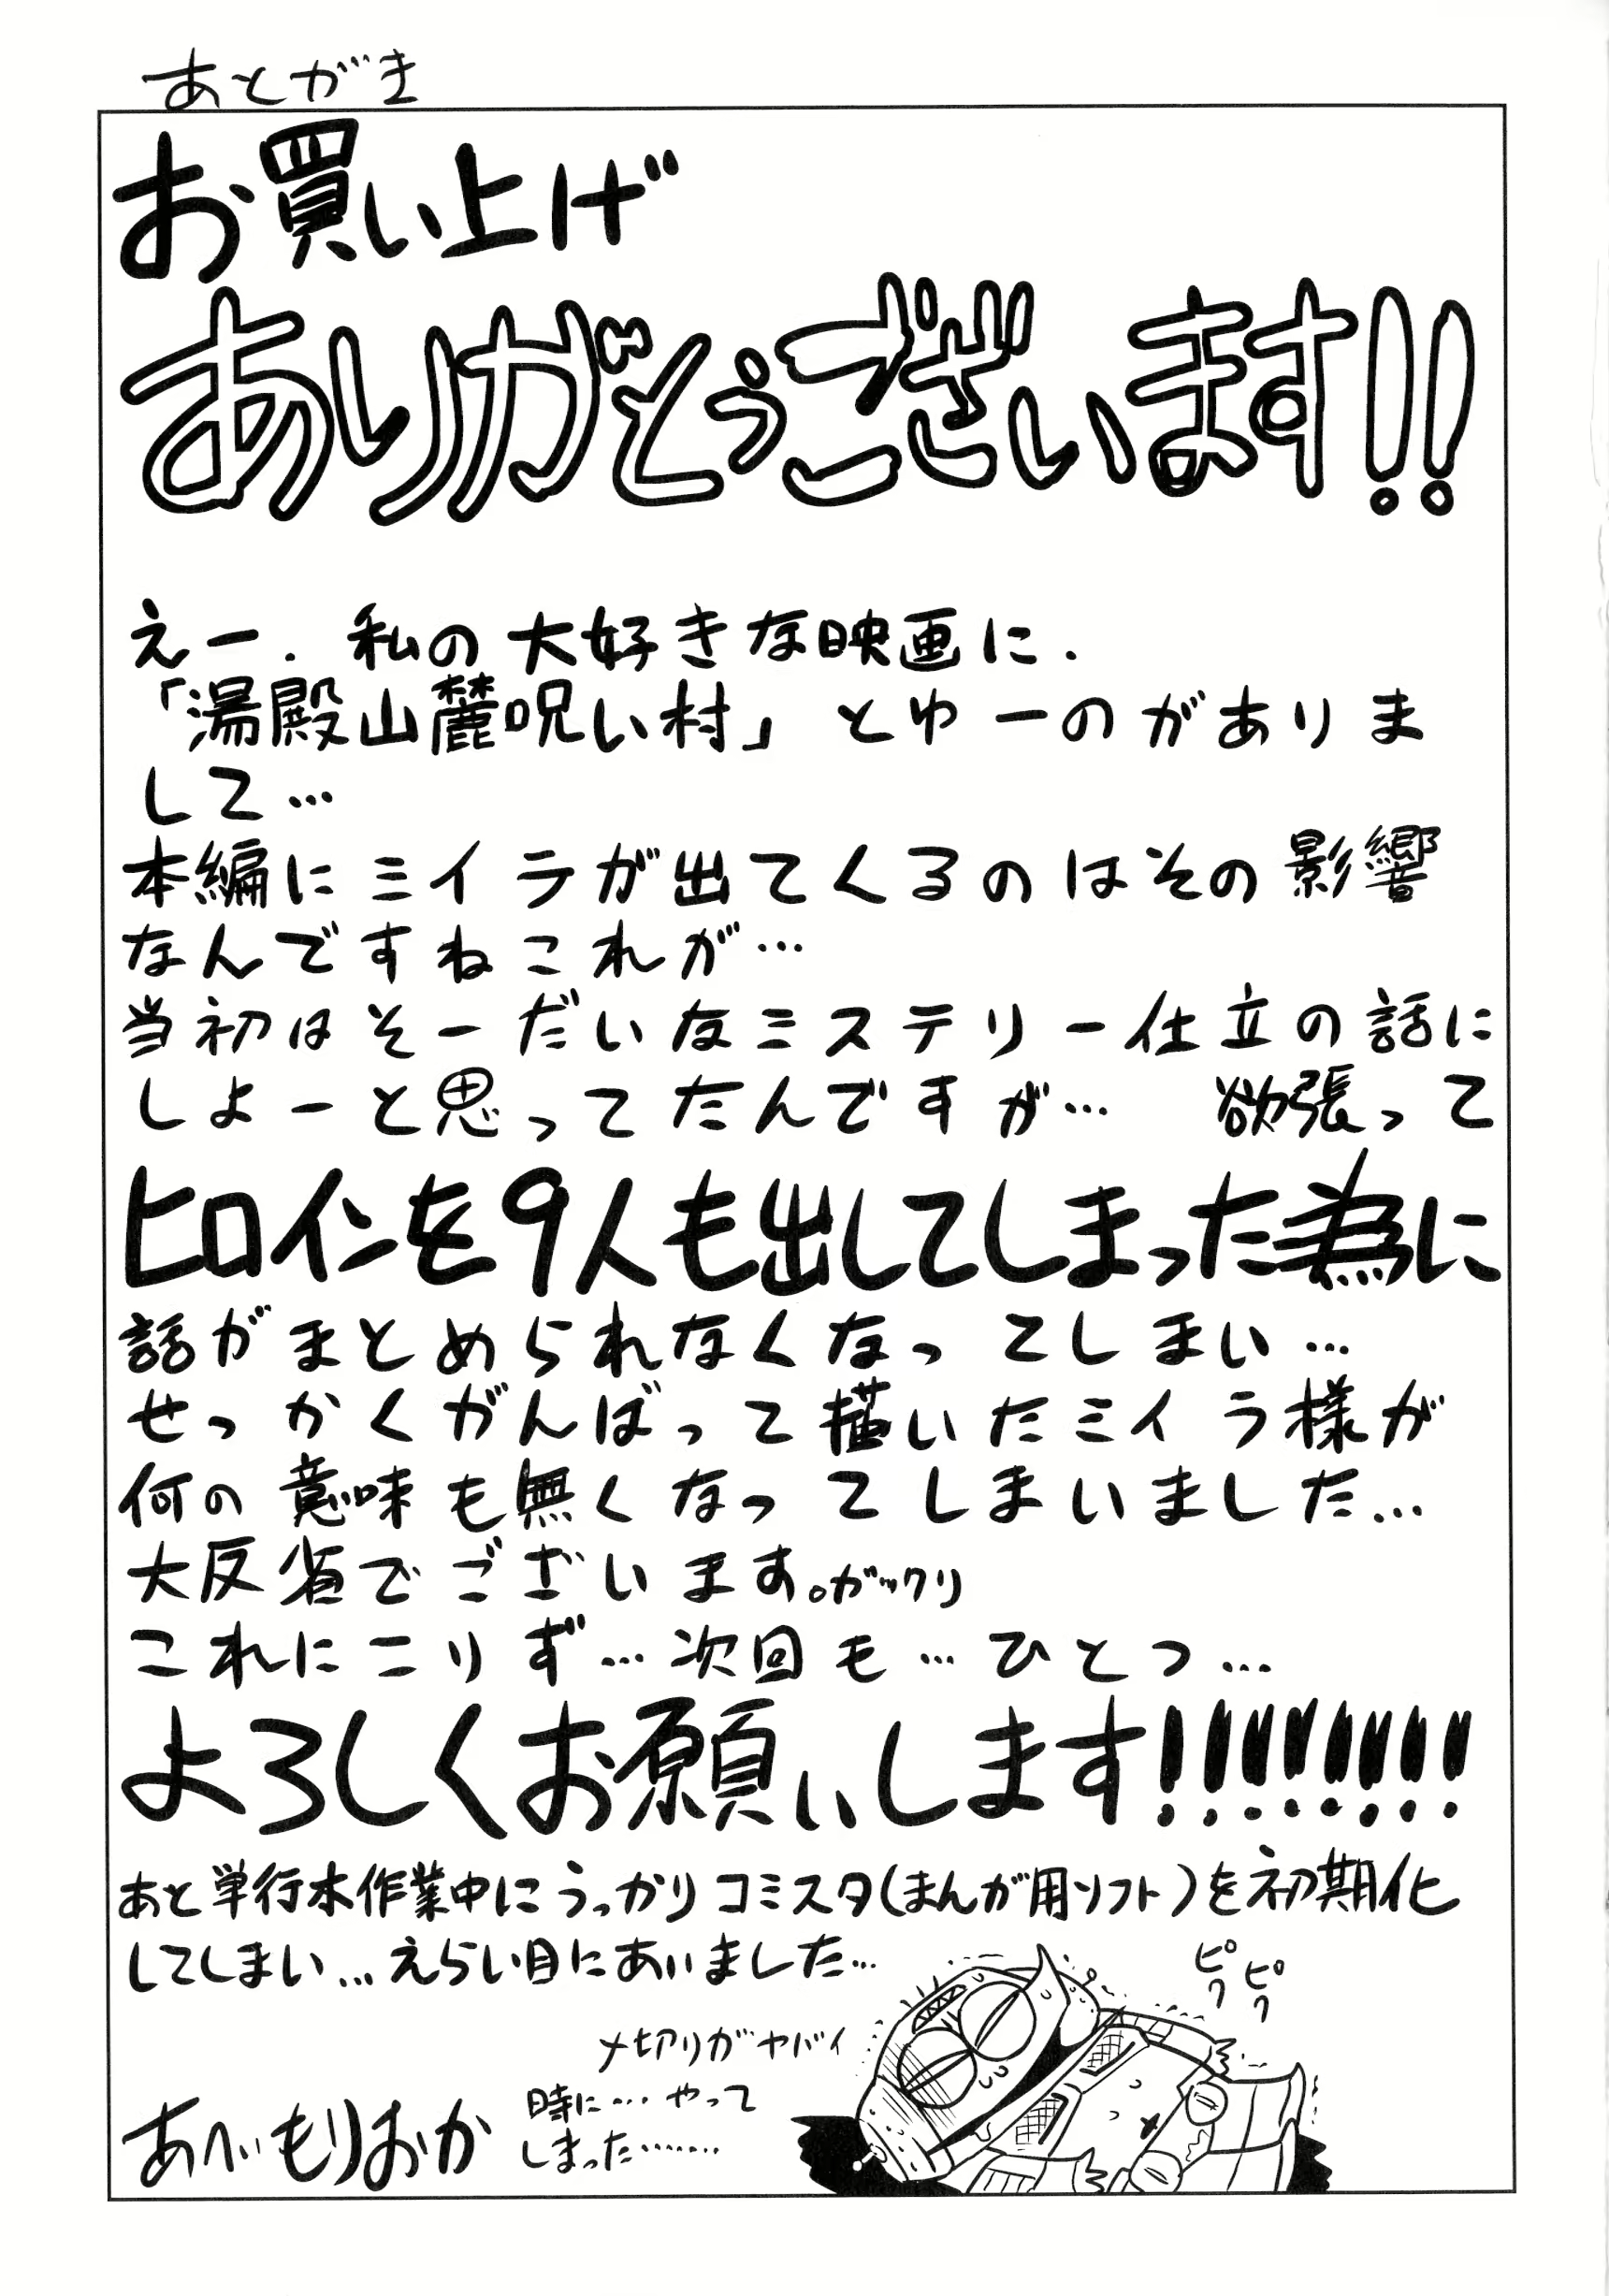 あとがき
お買い上げ
ありがとうございます!!
えー.私の大好きな映画に.
「湯殿山麓呪い村」とゆーのがありま
して…
本編にミイラが出てくるのはその影響
なんですねこれが…
当初はそーだいなミステリー仕立の話に
しよーと思ってたんですが… 欲張って
ヒロインを9人も出してしまった為に
話がまとめられなくなってしまい…
せっかくがんばって描いたミイラ様が
何の意味も無くなってしまいました…
大反省でございます。ガックリ
これにこりず…次回も…ひとつ…
よろしくお願いします!!!!!!!!
あと単行本作業中にうっかりコミスタ(まんが用ソフト)を初期化
してしまい…えらい目にあいました…
ピク
ピク
〆切アリがヤバイ
時に…やって
しまった……
あべもりおか